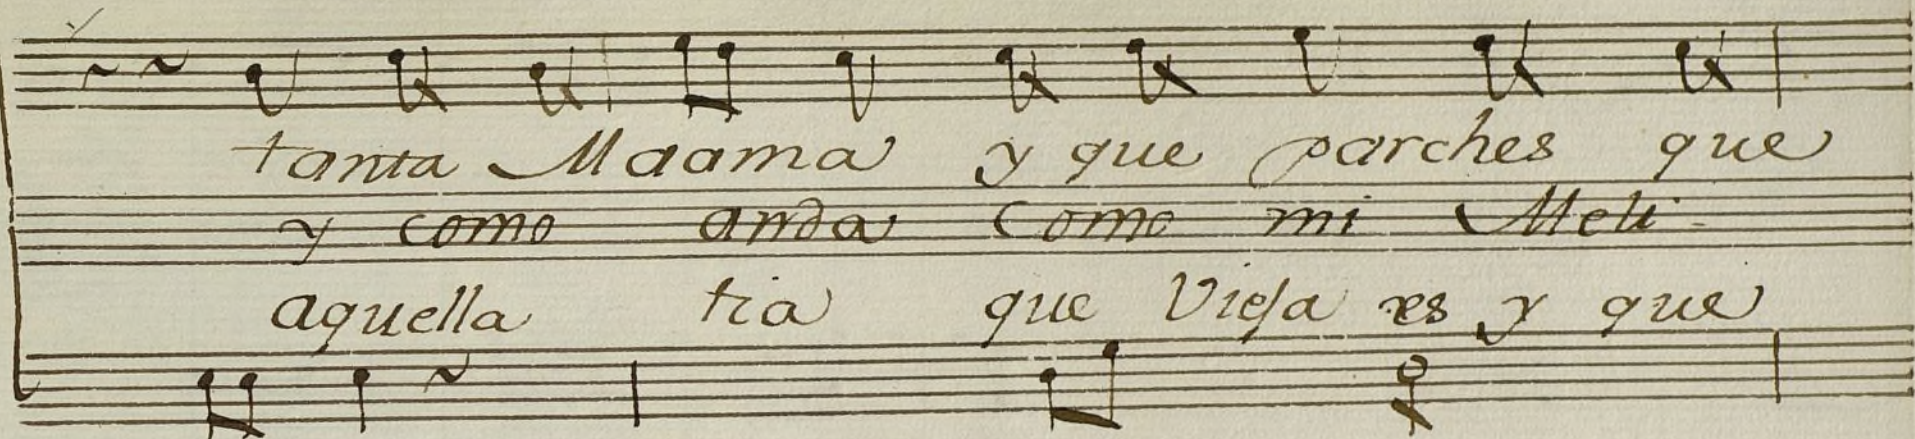 tanta Maama y que parches que
y como anda como mi Meli-
aquella tia que Vieja es y que